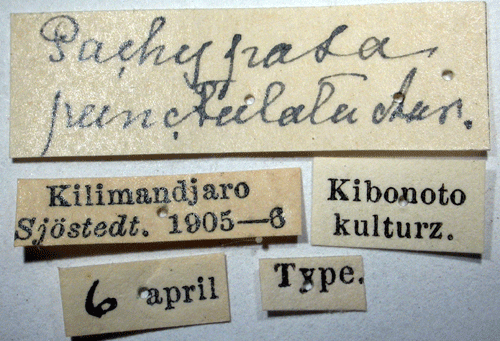 Pachypasa
punctulata Aur.
Kilimandjaro
Sjöstedt. 1905—6
Kibonoto
kulturz.
6 april
Type.